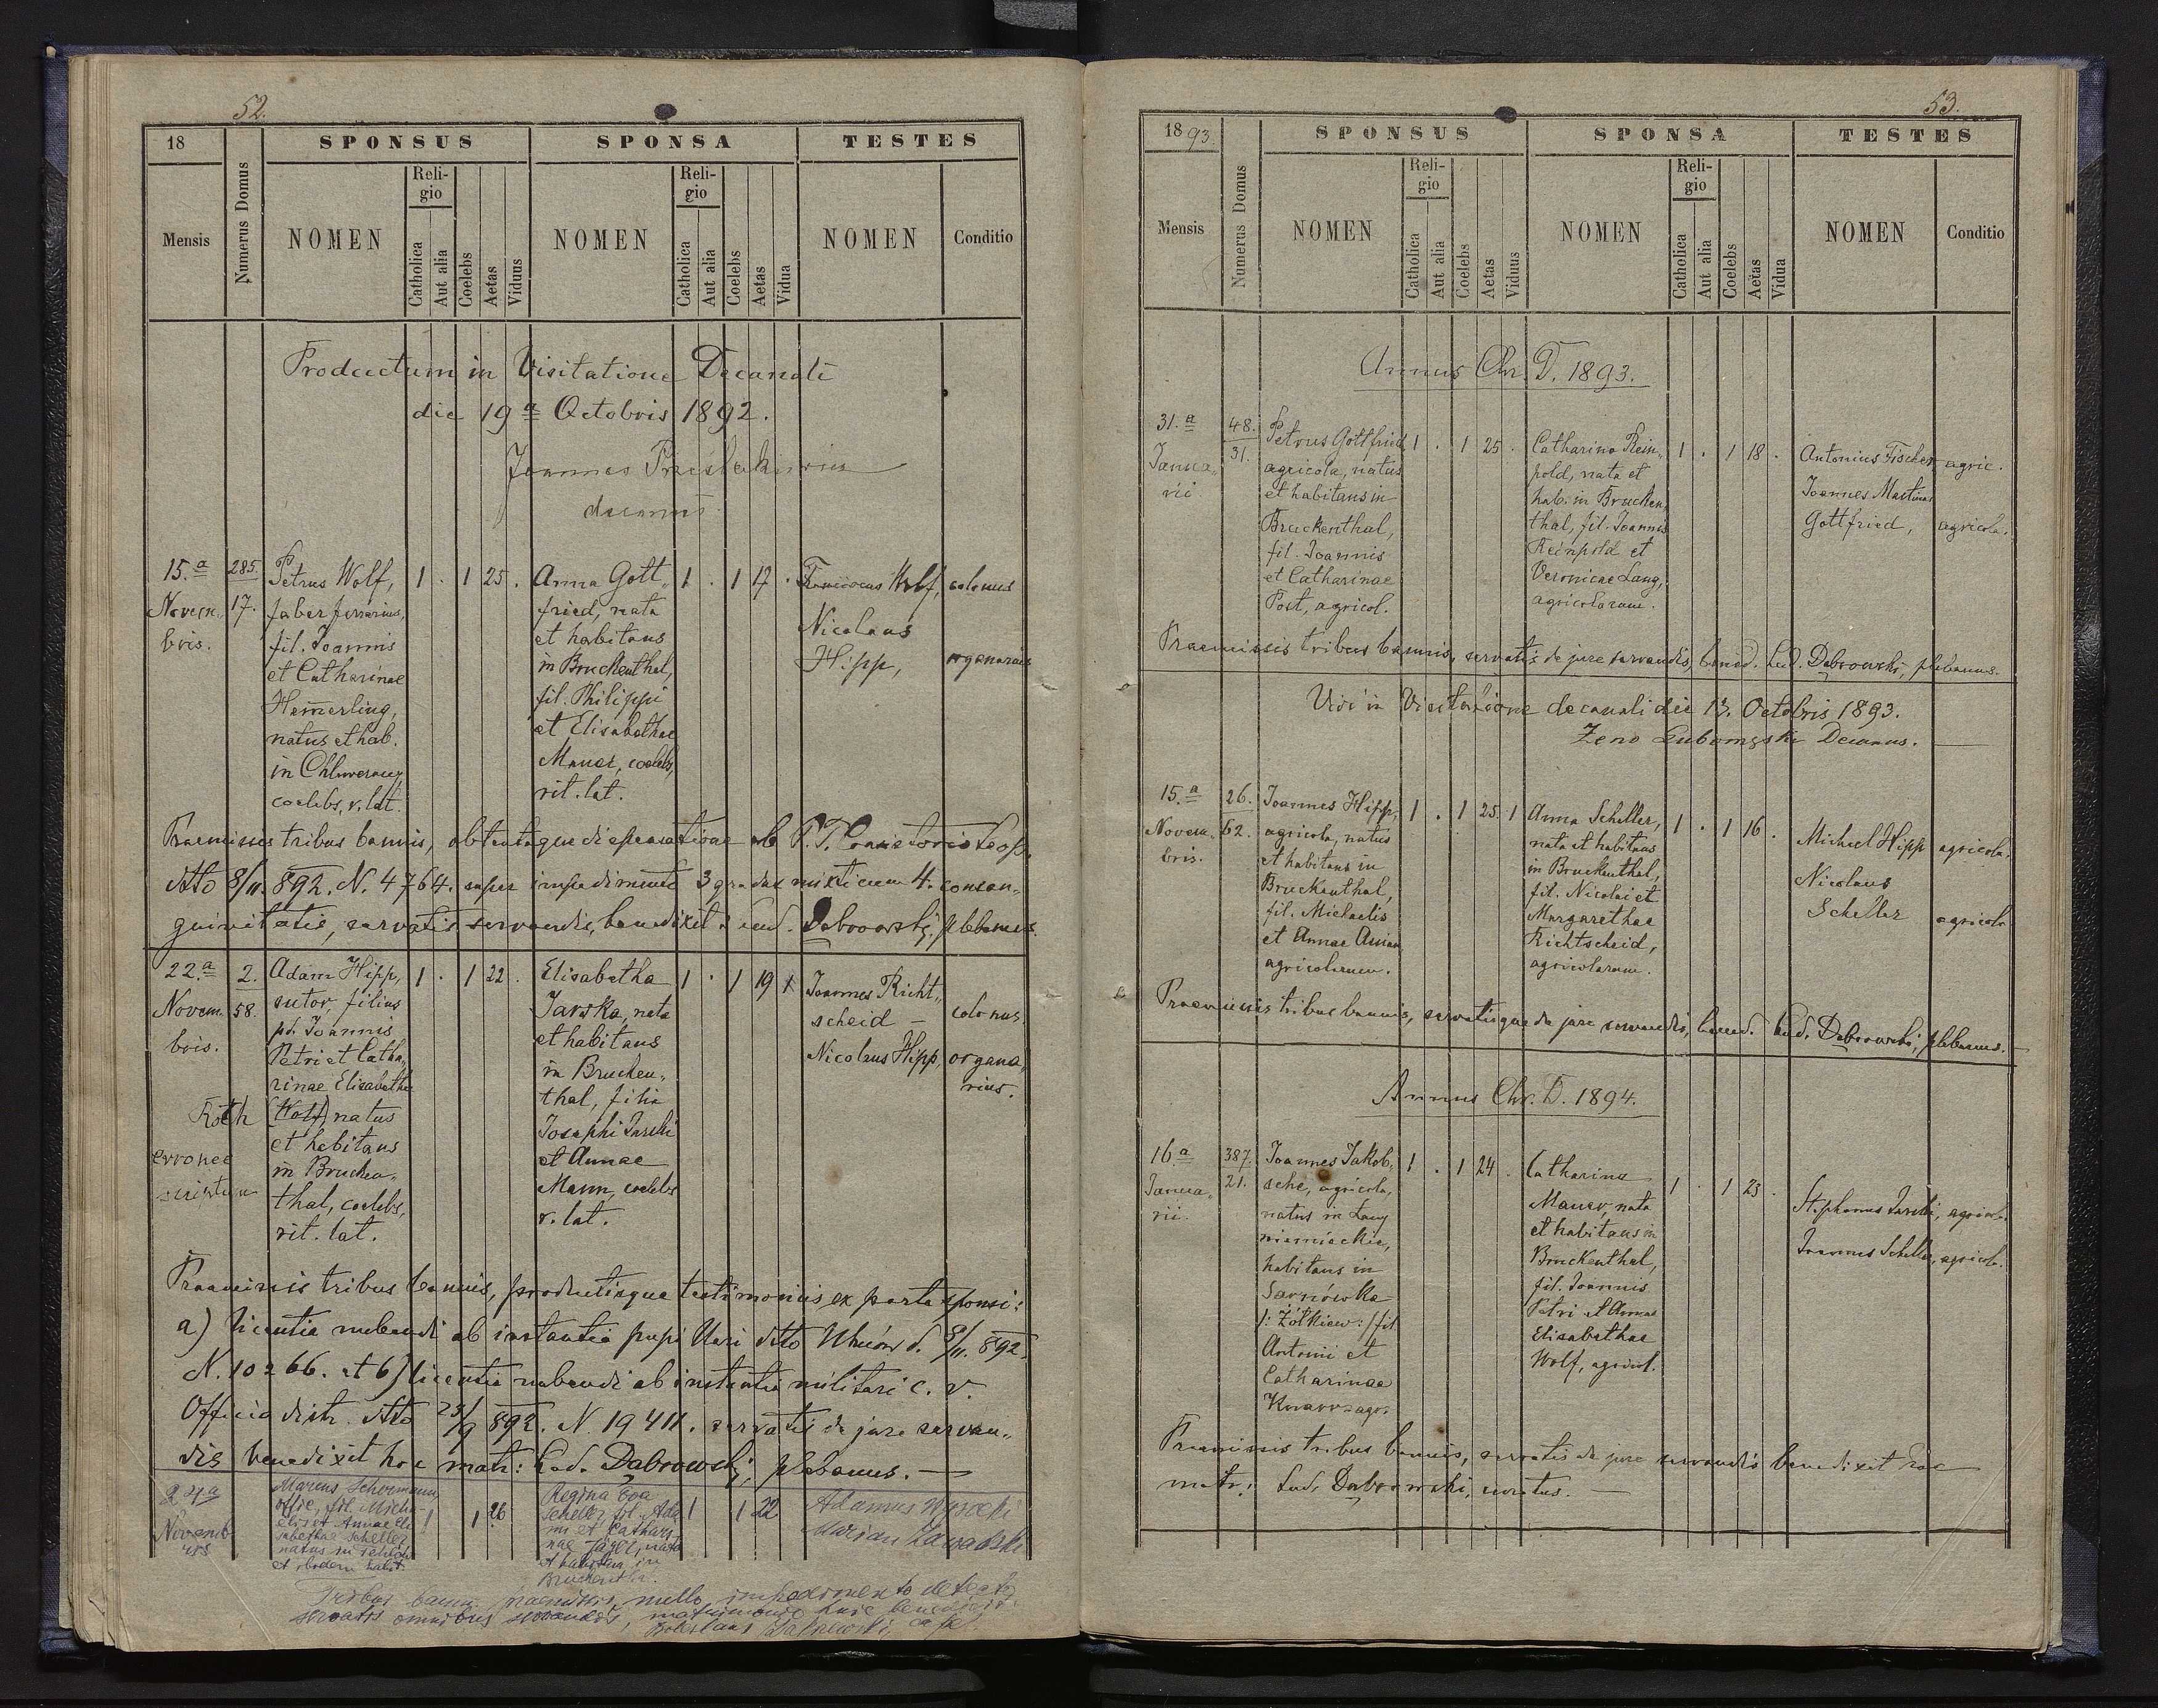 52.
18
SPONSUS
SPONSA
TESTES
Mensis
Numerus Domus
NOMEN
Religio
Catholica
Aut alia
Coelebs
Aetas
Viduus
NOMEN
Religio
Catholica
Aut alia
Coelebs
Aetas
Vidua
NOMEN
Conditio
Productum in Visitatione Decanali
die 19a Octobris 1892.
Joannes
decanus
15.a
Novem
bris.
285.
17.
Petrus Wolf,
faber ferrarius,
fil. Joannis
et Catharinae
Hemerling,
natus et hab.
in
coelebs, r. lat.
1 . 1 25 .
Anna Gott„
fried, nata
et habitans
in Bruckenthal,
fil. Philippi
et Elisabethae
Mauer, coelebs,
rit. lat.
1 . 1 17 .
Wolf, colonus
Nicolaus
Hipp, organarius
Praemissis tribus bannis, obtentaque dispensatione ab P. T. Consistorio Leop.
dtto 8/11. 892. N. 4764. super impedimento 3 gradus mixti cum 4. consan„
guinitatis, servatis servandis, benedixit: Lud. Dabrowski, plebanus.
22.a
Novem.
bris.
2.
58.
Adam Hipp,
sutor, filius
pd. Joannis
Petri et Catha„
rinae Elisabethae
Roth (Wolf) natus
erronee
scriptum
et habitans
in Brucken„
thal, coelebs,
rit. lat.
1 . 1 22 .
Elisabetha
Jarska, nata
et habitans
in Brucken„
thal, filia
Josephi Jarski
et Annae
Mann, coelebs
r. lat.
1 . 1 19
Joannes Richt„
scheid – colonus.
Nicolaus Hipp, organa„
rius.
Praemissis tribus bannis, productisque testimoniis ex parte sponsi:
a) licentia nubendi ab instantia dtto d. 9/11. 892.
N. 10266. et b) licentia nubendi ab instantia militari c. r.
Officio distr. dtto 23/9 892. N. 19411. servatis de jure servan„
dis benedixit hoc matr: Lud. Dabrowski, plebanus. —
24a
Novemb
Marcus Schermann,
offic, fil. Micha-
elis et Annae Eli
sabethae Scheller
natus in
et ibidem habit.
1 1 26
Regina Eva
Scheller fil. Ada
mi et Cathari
nae Jager, nata
et habitan. in
Bruckenthal.
1 1 22
Adamus Wysocki
Marian Zawadski
Tribus bann. praemissis, nullo impedimento detecto
servatis omnibus servandis, matrimonio huic benedixit
53.
1893.
SPONSUS
SPONSA
TESTES
Mensis
Numerus Domus
NOMEN
Religio
Catholica
Aut alia
Coelebs
Aetas
Viduus
NOMEN
Religio
Catholica
Aut alia
Coelebs
Aetas
Vidua
NOMEN
Conditio
Annus Chr. D. 1893.
31.a
Janua„
rii
48.
31.
Petrus Gottfried,
agricola, natus
et habitans in
Bruckenthal,
fil. Joannis
et Catharinae
Post, agricol.
1 . 1 25 .
Catharina Rein„
pold, nata et
hab. in Brucken„
thal, fil. Joannis
Reinpold et
Veronicae Lang,
agricolarum.
1 . 1 18 .
Antonius Fischer agric.
Joannes Martinus
Gottfried, agricola.
Praemissis tribus bannis, servatis de jure servandis, bened. Lud. Dabrowski, plebanus.
Vidi in Visitatione decanali die 13. Octobris 1893.
Zeno Lubomęski Decanus.
15.a
Novem.
bris.
26.
62.
Joannes Hipp,
agricola, natus
et habitans in
Bruckenthal,
fil. Michaelis
et Annae
agricolarum.
1 . 1 25. 1
Anna Scheller,
nata et habitans
in Bruckenthal,
fil. Nicolai et
Margarethae
Richtscheid,
agricolarum.
1 . 1 16 .
Michael Hipp agricola.
Nicolaus
Scheller agricola
Praemissis tribus bannis, servatisque de jure servandis, bened. Lud. Dabrowski, plebanus.
Annus Chr. D. 1894.
16.a
Janua„
rii.
387.
21.
Joannes Jakob„
sche, agricola,
natus in Lany
niemieckie,
habitans in
Sarnówka
/: Żółkiew :/ fil
Antonii et
Catharinae
1 . 1 24 .
Catharina
Mauer, nata
et habitans in
Bruckenthal,
fil. Joannis
Petri et Annae
Elisabethae
Wolf, agricol.
1 . 1 23 .
Stephanus Jarski, agricola.
Joannes Scheller, agricola.
Praemissis tribus bannis, servatis de jure servandis benedixit hoc
matr: Lud. Dabrowski, curatus. —